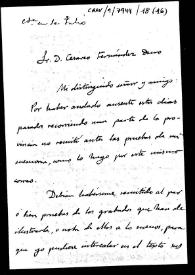 CARF/9/7944/18(16)
Sr. D. Cesareo Fernández Duro
Mi distinguido señor y amigo:
Por haber andado ausente estos dias
pasados recorriendo una parte de la pro-
vincia no remití antes las pruebas de mi
memoria, como lo hago por este mismo
correo.
Debian haberseme remitido al par
pruebas de los grabados que han de
ilustrarla, o nota de ellos a lo menos, para
que yo pudiese intercalar en el texto sus